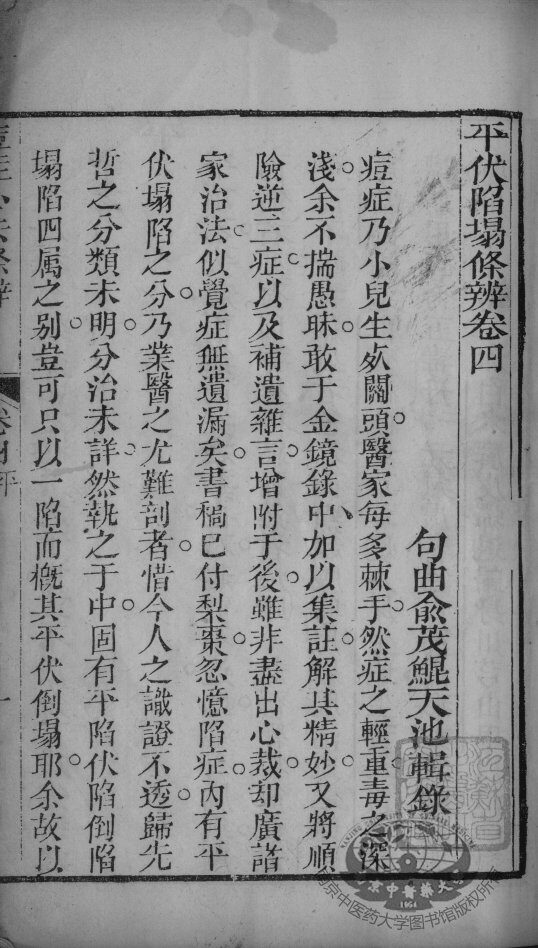 平伏陷塌條辨卷四
句曲俞茂鯤天池輯錄
痘症乃小兒生死關頭醫家每多棘手然症之輕重毒之深
淺余不揣愚昧敢于金鏡錄中加以集註解其精妙又將順
險逆三症以及補遺雜言增附于後雖非盡出心裁却廣諸
家治法似覺症無遺漏矣書稿已付梨棗忽憶陷症內有平
伏塌陷之分乃業醫之尤難剖者惜今人之識證不透歸先
哲之分類未明分治未詳然執之于中固有平陷伏陷倒陷
塌陷四属之别豈可只以一陷而概其平伏倒塌耶余故以
南京中医药大学图书馆版权所有
1954